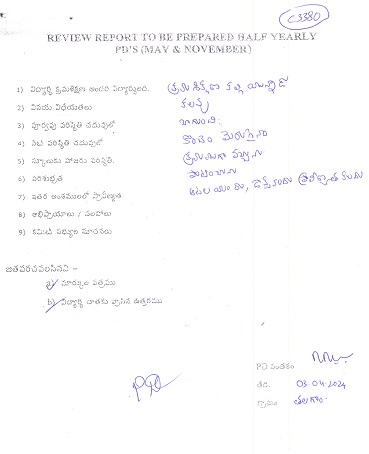 C3380
REVIEW REPORT TO BE PREPARED HALF YEARLY
PD'S (MAY & NOVEMBER)
1) విద్యార్థి క్రమశిక్షణ అందరి విద్యార్థులది. క్రమశిక్షణ కల్గి యున్నాడు
2) వినయ విధేయతలు కలవు
3) పూర్వపు పరిస్థితి చదువులో బాగుంది
4) నేటి పరిస్థితి చదువులో కొంచెం మెరుగైన
5) స్కూలుకు హాజరు పరిస్థితి. క్రమముగా
6) పరిశుభ్రత పాటించును
7) ఇతర అంశములలో ప్రావీణ్యత ఆటల
8) అభిప్రాయాలు / సలహాలు
9) కమిటీ సభ్యుల సూచనలు
జతపరచవలసినవి :-
a) మార్కుల పత్రము
b) విద్యార్థి దాతకు వ్రాసిన ఉత్తరము
PD సంతకం
తేది. 03-04-2024
గ్రామం తలగాం